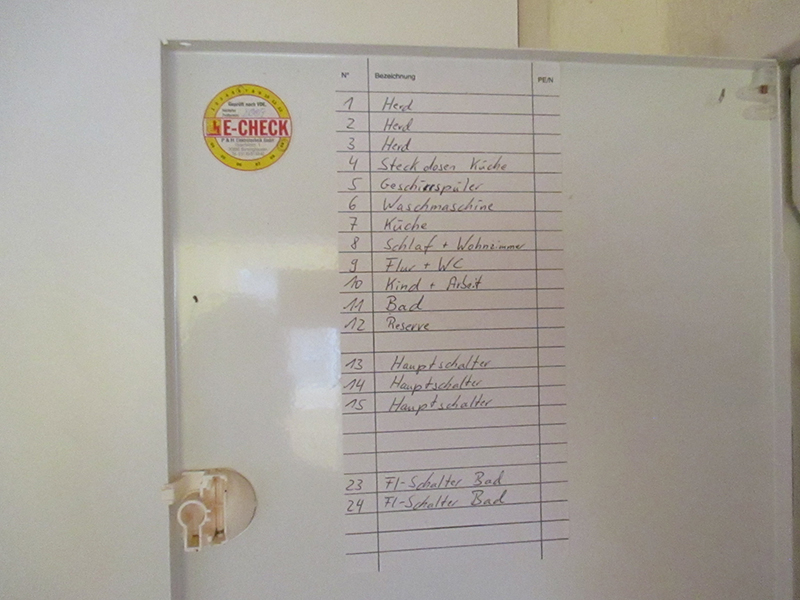 N° Bezeichnung PE/N
Geprüft nach VDE
E-CHECK
1 Herd
2 Herd
3 Herd
4 Steckdosen Küche
5 Geschirrspüler
6 Waschmaschine
7 Küche
8 Schlaf + Wohnzimmer
9 Flur + WC
10 Kind + Arbeit
11 Bad
12 Reserve
13 Hauptschalter
14 Hauptschalter
15 Hauptschalter
23 FI-Schalter Bad
24 FI-Schalter Bad